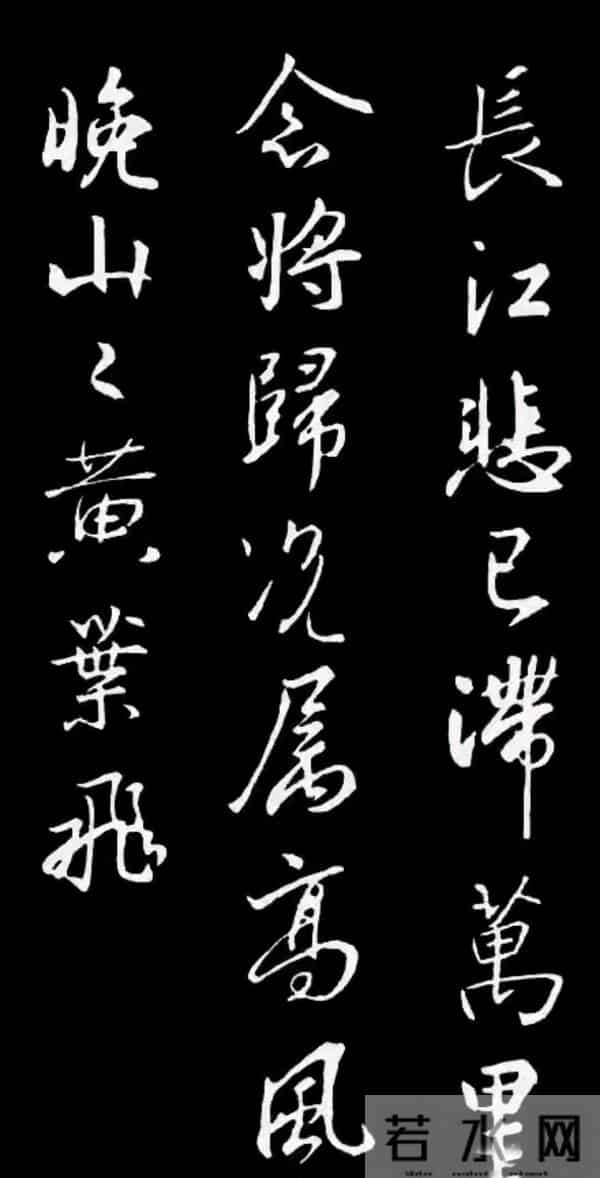 長江悲已滯萬里
念將歸况属高風
晚山〻黃葉飛
若水网